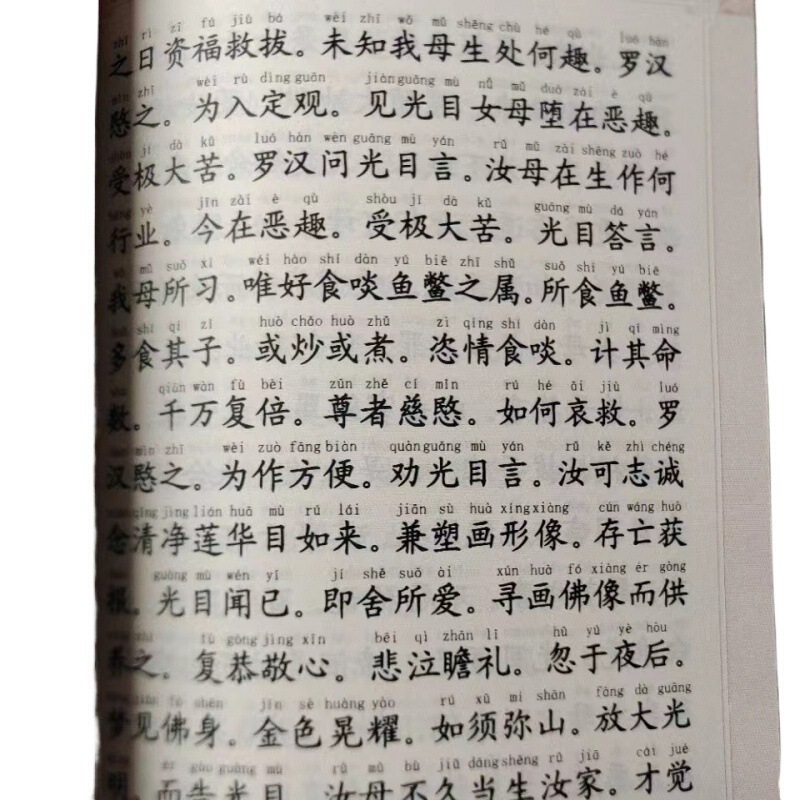 zhī rì zī fú jiù bá wèi zhī wǒ mǔ shēng chù hé qù luó hàn
之日资福救拔。未知我母生处何趣。罗汉
mǐn zhī wèi rù dìng guān jiàn guāng mù nǚ mǔ duò zài è qù
愍之。为入定观。见光目女母堕在恶趣。
jí dà kǔ luó hàn wèn guāng mù yán rǔ mǔ zài shēng zuò hé
受极大苦。罗汉问光目言。汝母在生作何
yè jīn zài è qù shòu jí dà kǔ guāng mù dá yán
行业。今在恶趣。受极大苦。光目答言。
mǔ suǒ xí wéi hào shí dàn yú biē zhī shǔ suǒ shí yú biē
我母所习。唯好食啖鱼鳖之属。所食鱼鳖。
shí qí zǐ huò chǎo huò zhǔ zì qíng shí dàn jì qí mìng
多食其子。或炒或煮。恣情食啖。计其命
qiān wàn fù bèi zūn zhě cí mǐn rú hé āi jiù luó
数。千万复倍。尊者慈愍。如何哀救。罗
mǐn zhī wèi zuò fāng biàn quàn guāng mù yán rǔ kě zhì chéng
汉愍之。为作方便。劝光目言。汝可志诚
qīng jìng lián huā mù rú lái jiān sù huà xíng xiàng cún wáng huò
念清净莲华目如来。兼塑画形像。存亡获
guāng mù wén yǐ jí shě suǒ ài xún huà fó xiàng ér gòng
报。光目闻已。即舍所爱。寻画佛像而供
zhī fù gōng jìng xīn bēi qì zhān lǐ hū yú yè hòu
养之。复恭敬心。悲泣瞻礼。忽于夜后。
jiàn fó shēn jīn sè huǎng yào rú xū mí shān fàng dà guāng
梦见佛身。金色晃耀。如须弥山。放大光
ér gào guāng mù rǔ mǔ bù jiǔ dāng shēng rǔ jiā cái jué
明。而告光目。汝母不久当生汝家。才觉